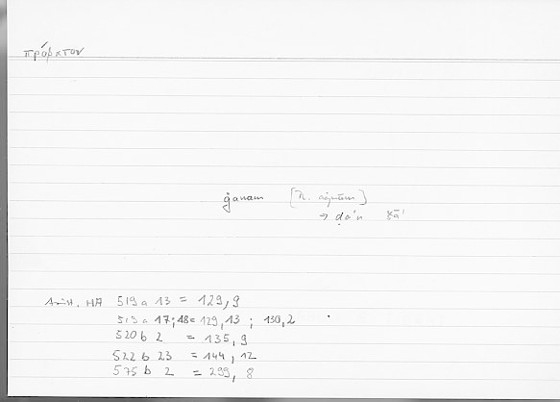 πρόβατον
ġanam
→ ḍa'n šā'
Arist. HA 519 a 13 = 129, 9
519 a 17; 18 = 129, 13 ; 130, 2
520 b 2 = 135, 9
522 b 23 = 144, 12
575 b 2 = 299, 8